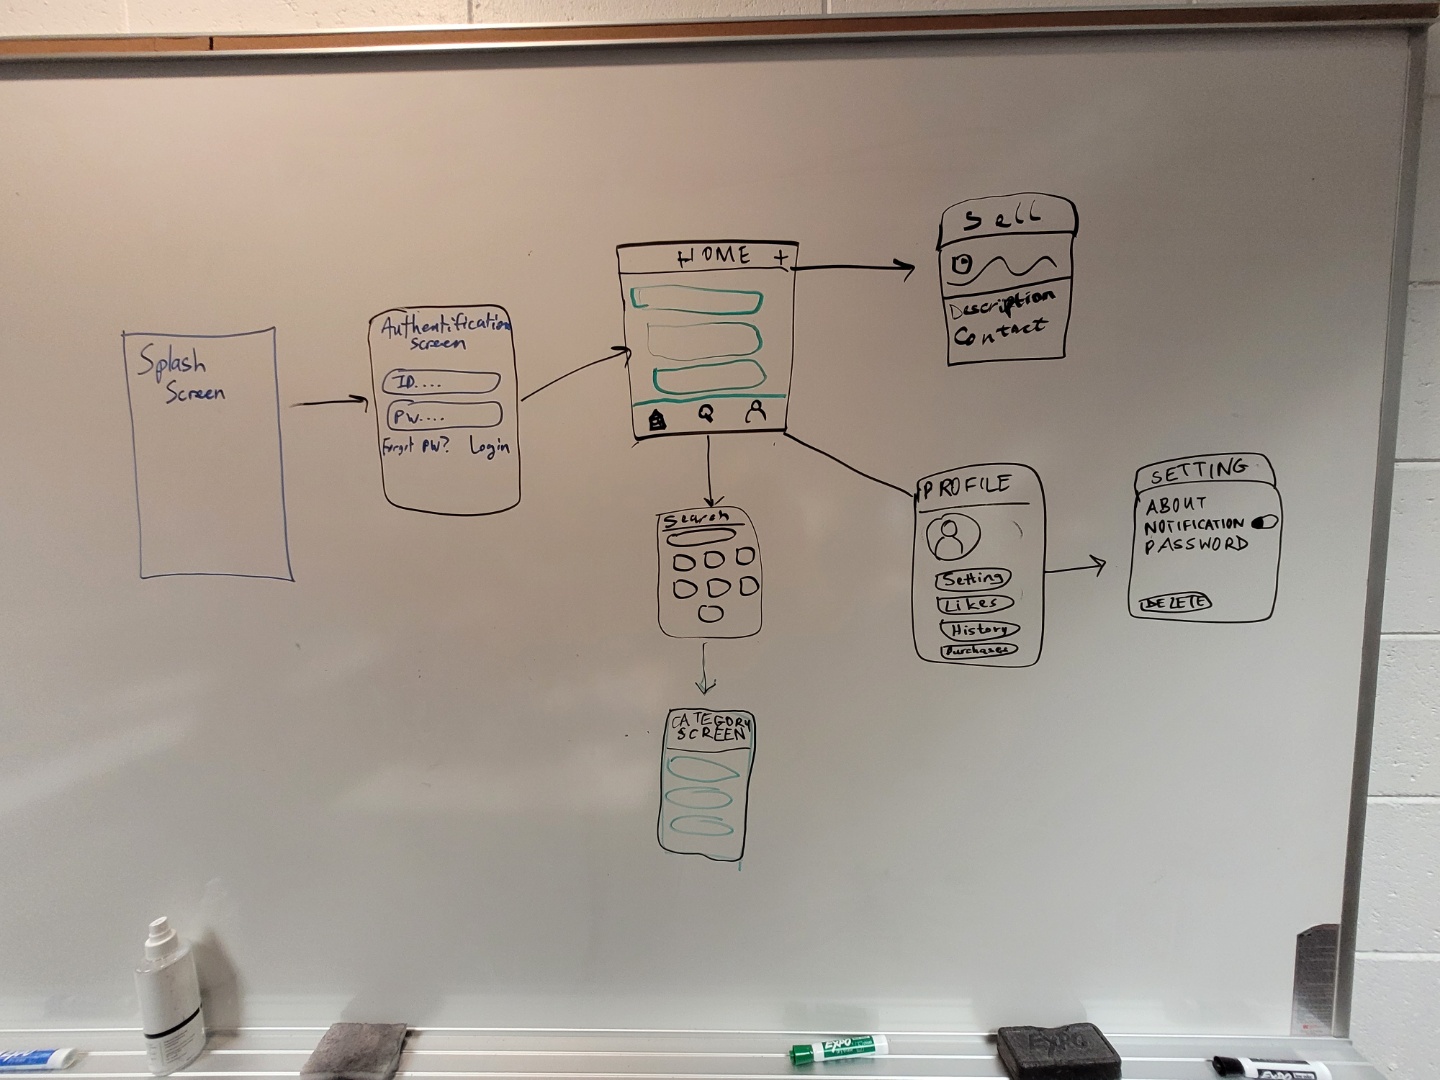 Splash
Screen
Authentification
screen
ID....
PW....
Forgot PW?
Login
HOME +
Sell
Description
Contact
Search
CATEGORY
SCREEN
PROFILE
Setting
Likes
History
Purchases
SETTING
ABOUT
NOTIFICATION
PASSWORD
DELETE
EXPO
EXPO
EXPO
EXPO